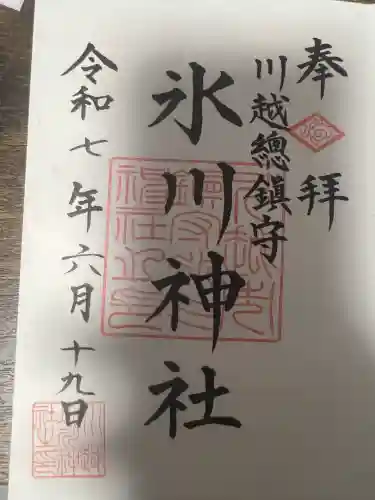 奉拝
川越總鎮守
氷川神社
令和七年六月十九日